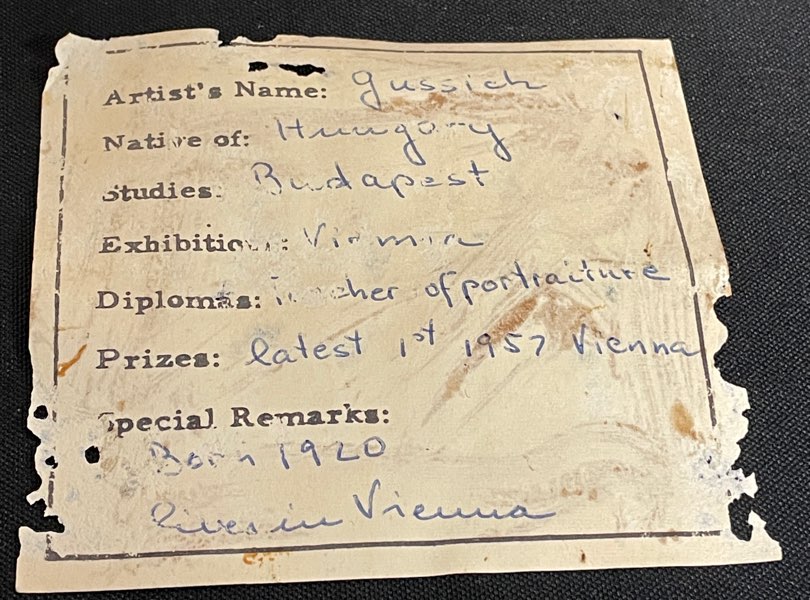 Artist's Name: Gussich
Native of: Hungary
Studies: Budapest
Exhibitions: Vienna
Diplomas: Teacher of portraiture
Prizes: latest 1st 1957 Vienna
Special Remarks:
Born 1920
lives in Vienna